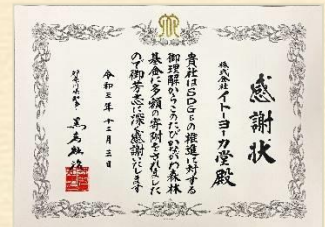 感謝状
株式会社イトーヨーカ堂 殿
貴社はSDGsの推進に対する
御理解からこのたびかながわ森林
基金に多額の寄附をされました
ので御芳志に深く感謝いたします
令和三年 十二月 三日
神奈川県知事 黒岩祐治